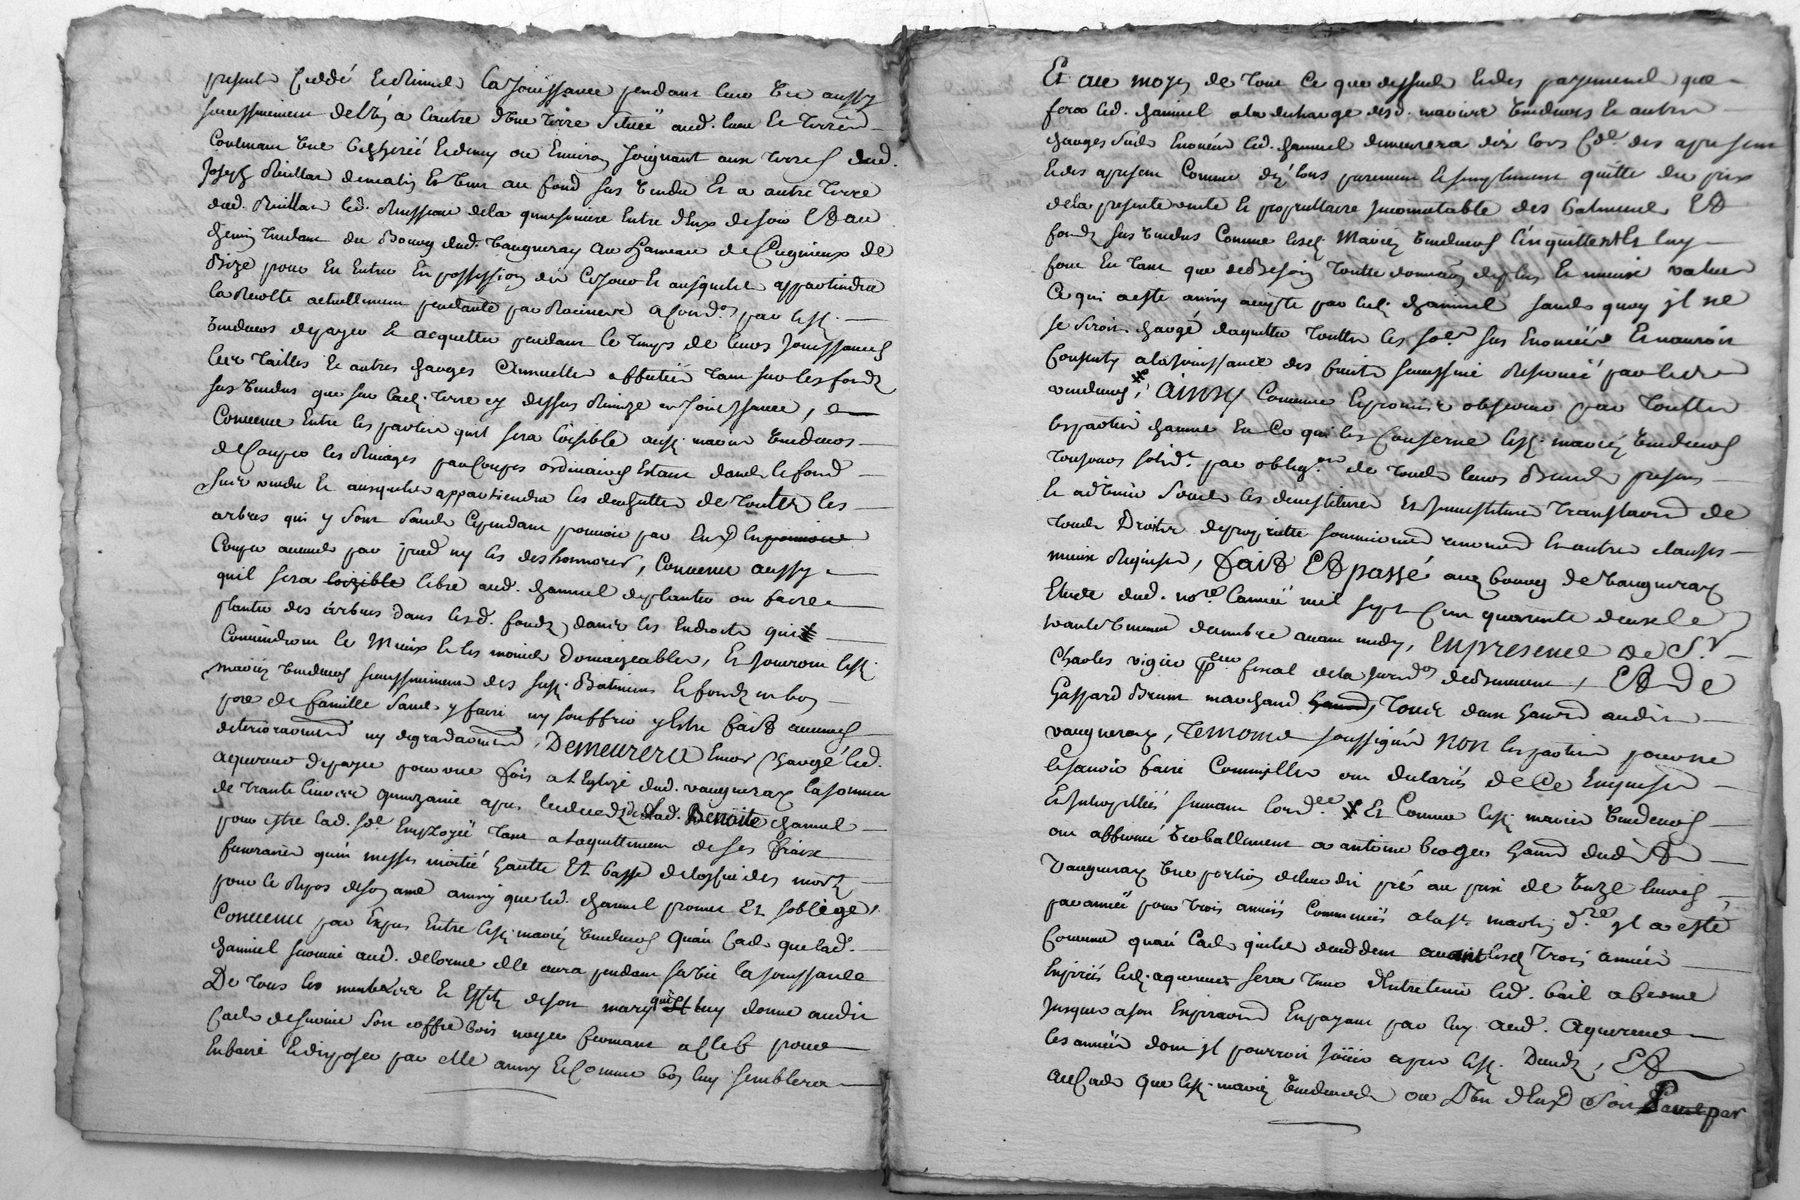 present cedde et Remis la Jouissance pendant leur vie aussy
successivement de l'un a l'autre d'une terre située aud. lieu le terrin
Contenant une bicherée et demy ou Environ Joignant aux terres dud.
Joseph Rivillar de matin et vent au fond sus vendu Et a autre terre
dud. Rivillar led. Ruisseau de la quinsoniere Entre deux de soir Et au
chemin tendant du Bourg dud. Vaugneray au hameau de
Bize pour En Entrer En possession dès Cejour et ausquels appartiendra
la Recolte actuellement pendante par Racines a Cond.on par lesd.
vendeurs de payer et acquitter pendant le temps de leurs Jouissances
les tailles et autres charges Annuelles affectées tant sur les fonds
sus vendus que sur lad. terre cy dessus Remize en Jouissance,
Convenu Entre les parties quil sera loisible ausd. mariés vendeurs
de Couper les Ramages par Coupes ordinaires Estant dans le fond
sus vendu et ausquels appartiendra les de toutes les
arbres qui y sont sans Cependant pouvoir par Eux
Couper aucuns par pied ny les deshonnorer, Convenu aussy
quil sera loizible libre aud. chamuel de planter ou faire
planter des arbres dans lesd. fonds dans les Endroits qui
Conviendront le Mieux et les moins Domageables, Et Jouiront lesd.
mariés vendeurs successivement des susd. Batiments et fonds en bon
pere de famille sans y faire ny souffrir y Estre fait aucunes
deteriorations ny degradations, Demeurera Encor Chargé led.
acquereur de payer pour une fois a l'Eglize dud. vaugneray la somme
de trante livres quinzaine apres le deceds de lad. Benoite chamuel
pour estre lad. so.e Employée tant a laquittement de ses frais
funeraires quen messes moitié haute Et basse de loffice des morts
pour le Repos de son ame ainsy que led. chamuel promet Et soblige,
Convenu par Expres Entre lesd. mariés vendeurs Quau Cas que lad.
chamuel survive aud. delorme elle aura pendant sa vie la Jouissance
De tous les meubles et Effets de son mary qui luy donne audit
Cas de survie son coffre bois noyer fermant a Clef pour
En faire et disposer par elle ainsy et Comme bon luy semblera
Et au moyen de tout Ce que dessus et des payements que
fera led. chamuel a la decharge desd. mariés vendeurs et autres
charges sus Enoncées led. chamuel demeurera dès lors des a present
et des a present Comme dès lors purement et simplement quitte du prix
de la presente vente et proprietaire Incommutable des batiments Et
fonds sus vendus Comme lesd. Mariés vendeurs l'en quittent Et luy
font En tant que de Besoin toutte donnation de plus et mieux value
Ce qui a esté ainsy accepté par led. chamuel sans quoy il ne
se seroit chargé daquitter touttes les so.es sus Enoncées Et n'auroit
Consenty a la Jouissance des fruits sus Reservée par lesd.
vendeurs, Ainsy Convenu et promis observer par touttes
les parties chacune En Ce qui les Conserne lesd. mariés vendeurs
toujours solid.t par oblig.on de tous leurs Biens presens
et advenir sous les demissions Et Investitures translation de
tous Droits de proprieté soumissions renon.ons Et autres clauses
mieux Requises, fait Et passé au bourg de vaugneray
Etude dud. no.re l'année mil sept Cent quarante deux le
trante decembre avant midy, En presence de S.r
Charles vigier p.eur fiscal de la Jurid.on de , Et de
Gaspard Brun marchand, tous deux hab.ts audit
vaugneray, temoins soussignés non les parties pour ne
le savoir faire Comme Elles ont declarés de Ce Enquises
Et Interpellées suivant lord.ce Et Comme lesd. mariés vendeurs
ont affermé verballement a antoine hab.t dudit
Vaugneray une portion de leur dit pré au prix de unze livres
par année pour trois années Commencées a la st. martin d.re il a esté
Convenu quau Cas quils decedent avant lesd. trois années
Expirées led. acquereur sera tenu d'Entretenir led. bail a ferme
Jusques a son Expiration En payant par luy aud. Acquereur
les années dont il pourroit Jouir apres lesd. Deceds, Et
au Cas que lesd. mariés vendeurs ou l'un d'Eux soit par